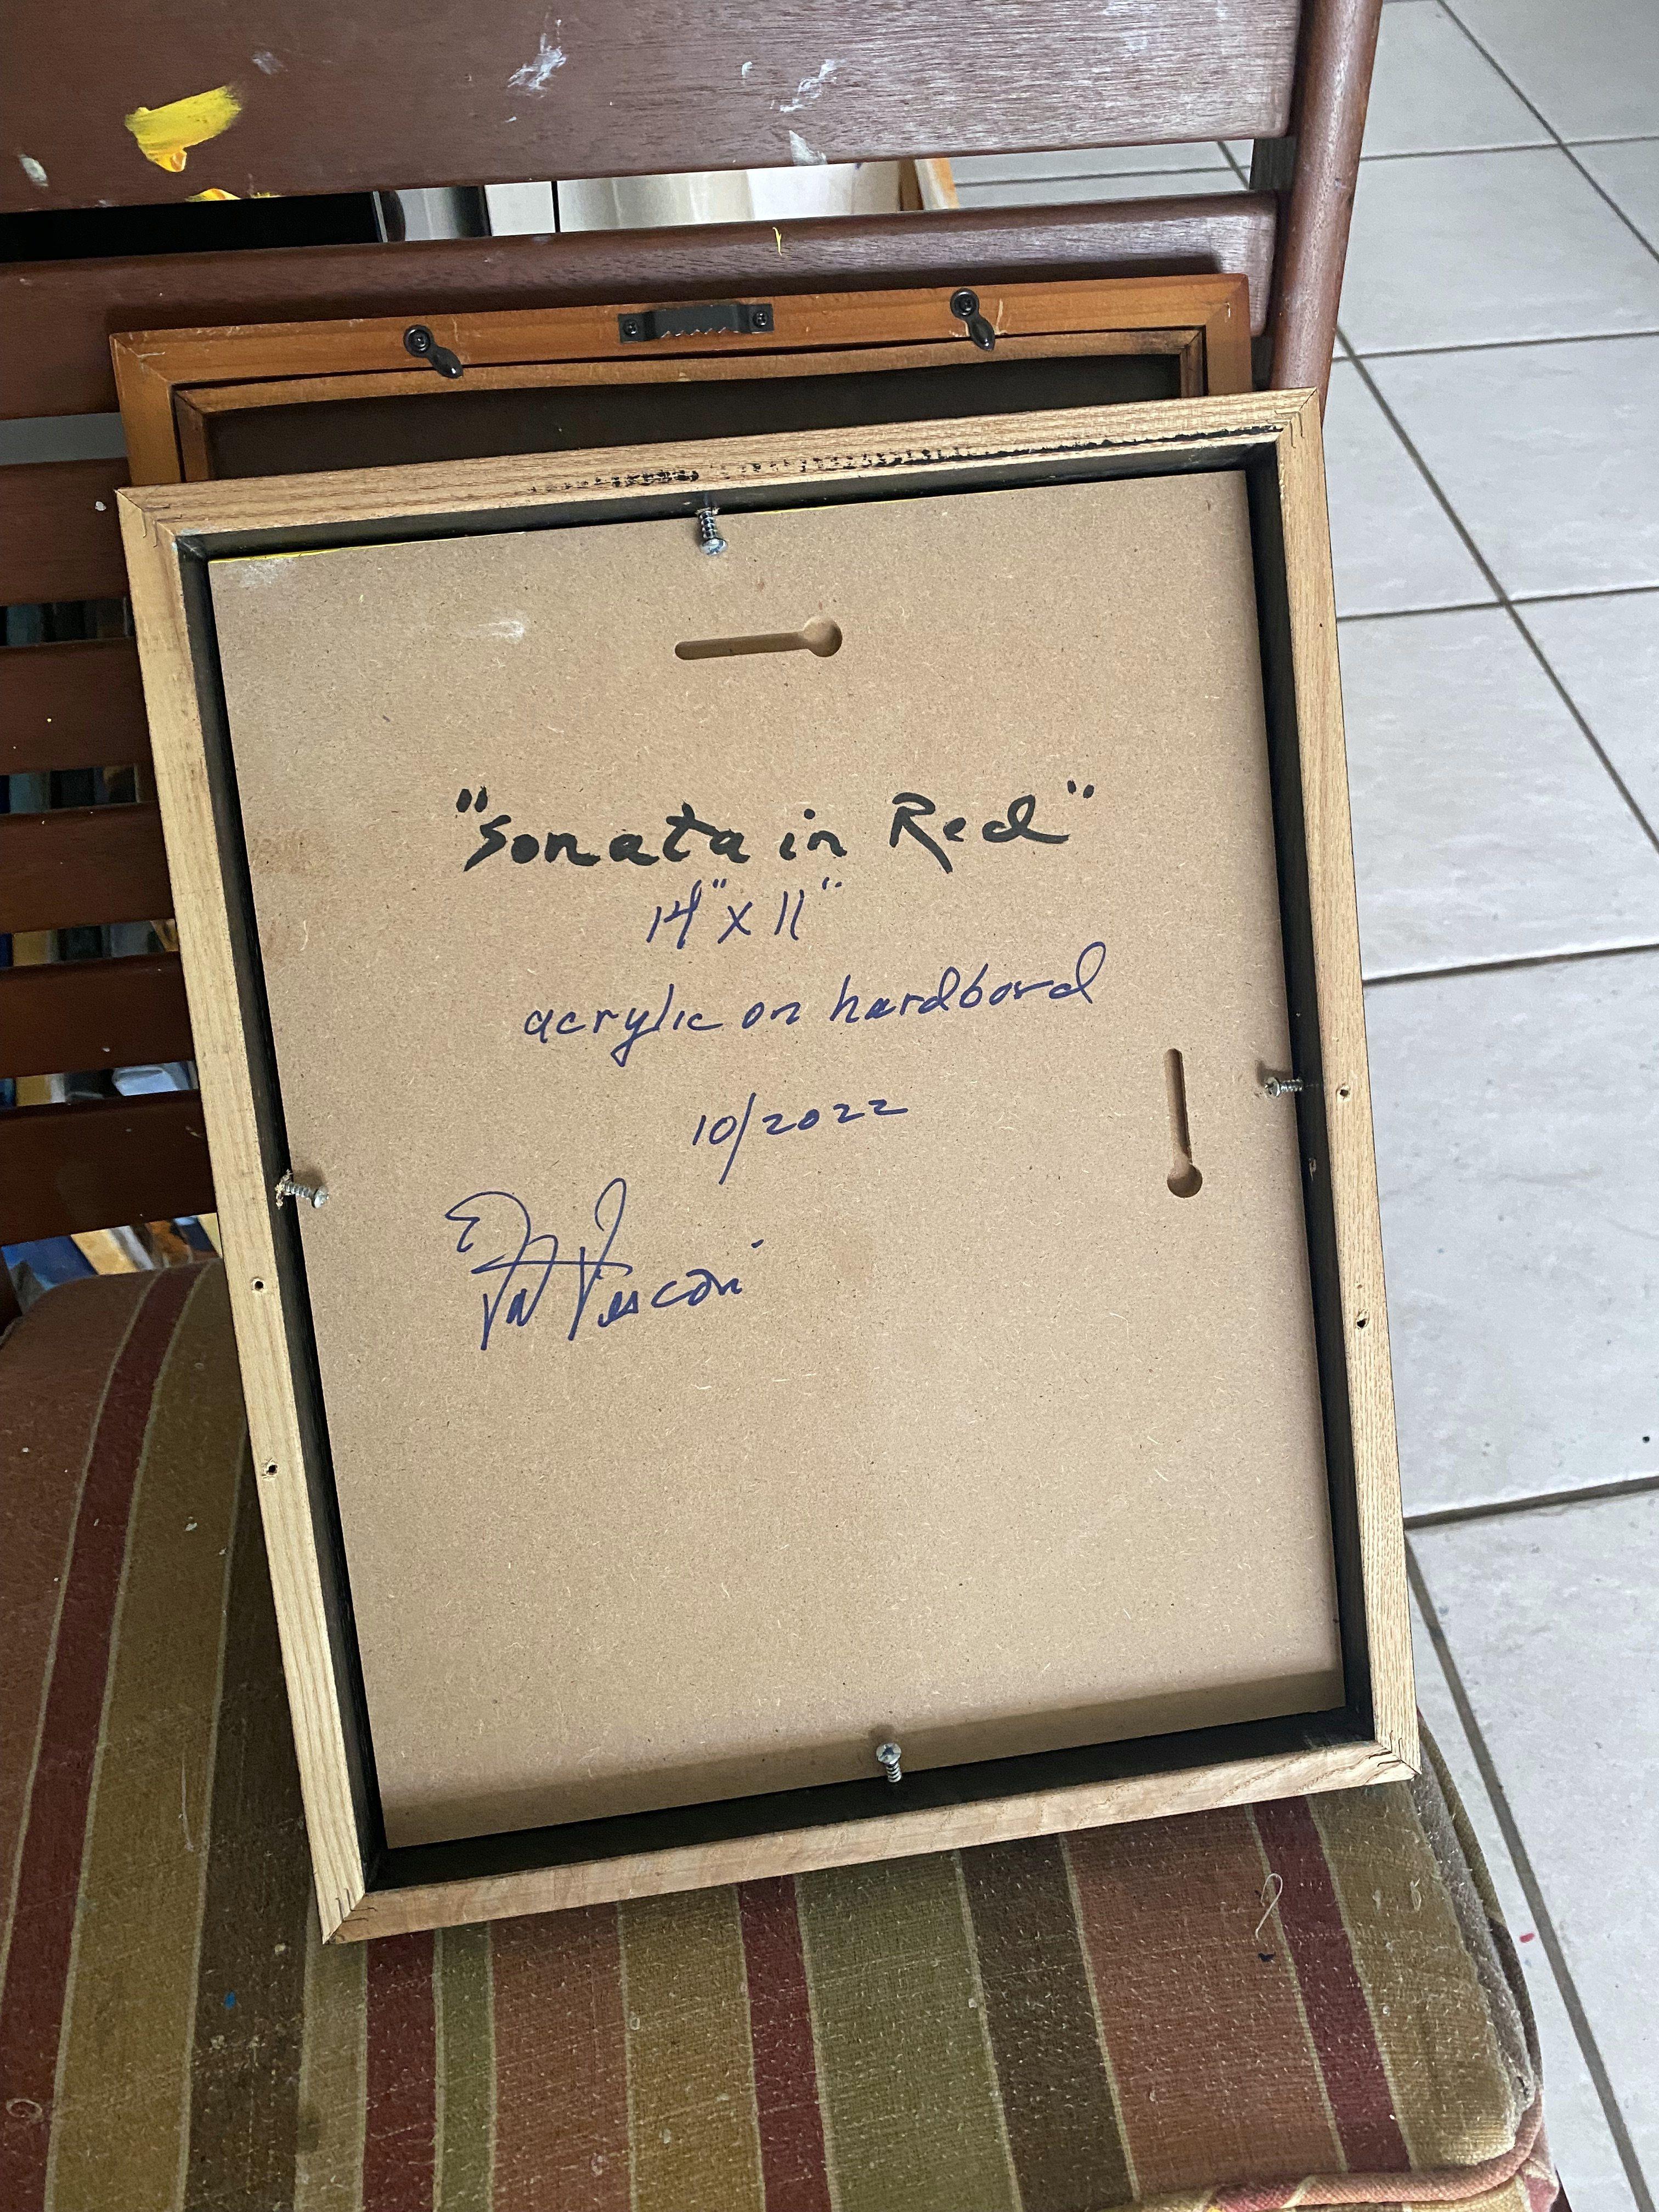 "Sonata in Red"
14" x 11"
acrylic on hardbord
10/2022